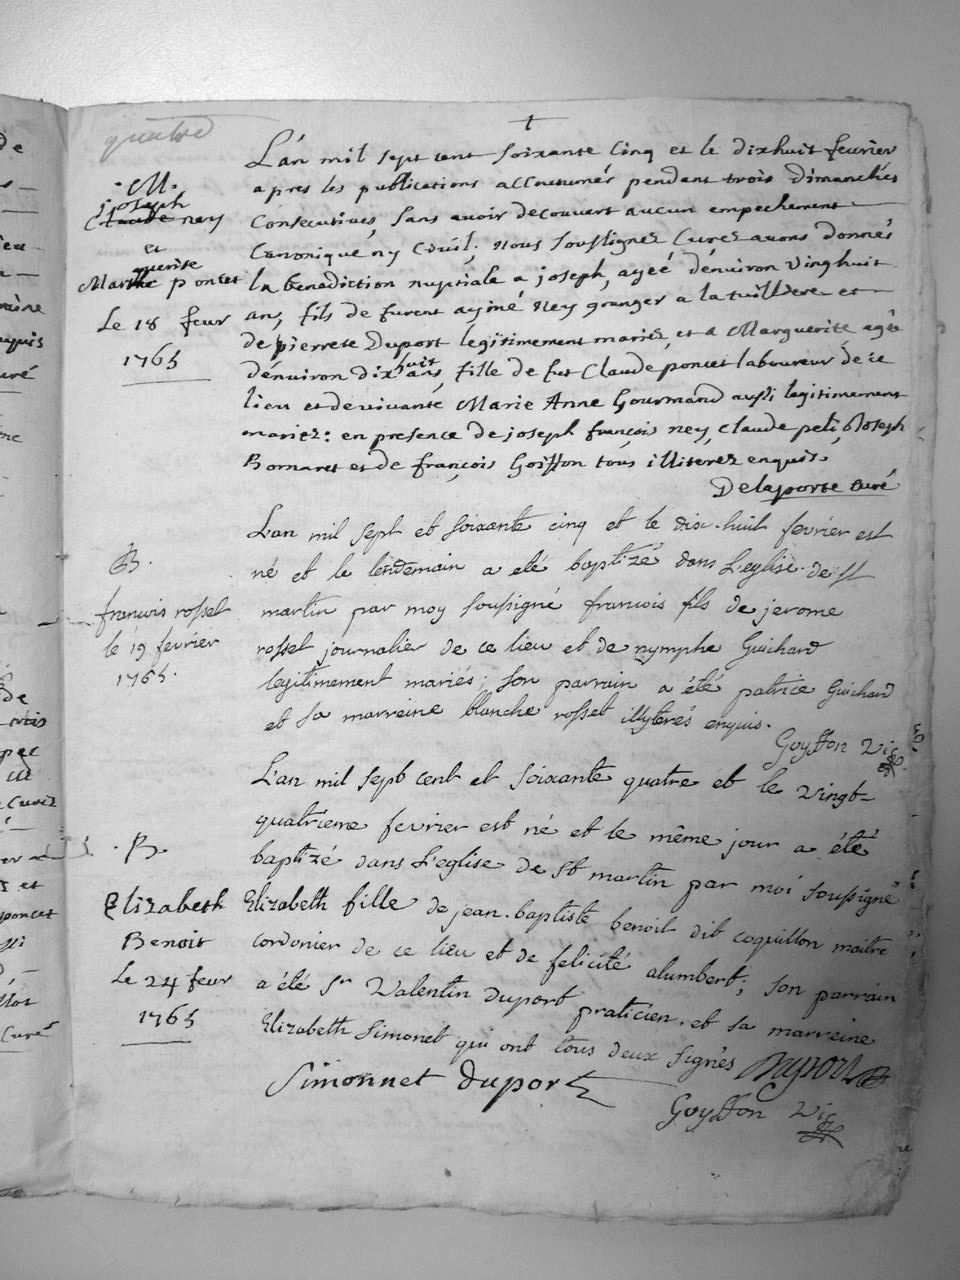 quatre
L'an mil sept cent soixante cinq et le dixhuit fevrier
apres les publications accoutumés pendant trois dimanches
consecutives, sans avoir decouvert aucun empechement
canonique ny Civil; nous soussignez Curez avons donnés
la benediction nuptiale a joseph, ageé d'environ vinghuit
ans, fils de furent aymé Ney granger a la tuilliere et
de pierrete Duport legitimement mariez, et a Marguerite agée
d'environ dixhuit ans, fille de fut Claude poncet laboureur de ce
lieu et de vivante Marie Anne Gourmand aussi legitimement
mariez: en presence de joseph françois ney, Claude peti, Joseph
Bornaret et de françois Goiffon tous illiterez enquis
Delaporte curé
M.
joseph
Claude ney
et
guerite
Marthe poncet
Le 18 fevr
1765
L'an mil sept et soixante cinq et le dix-huit fevrier est
né et le lendemain a eté baptizé dans L'eglise de st
martin par moy soussigné francois fils de jerome
rosset journalier de ce lieu et de nymphe Guichard
legitimement mariés; son parrain a été patrice Guichard
et sa marreine blanche rosset illyterés enquis.
Goyffon Vic
B.
francois rosset
le 19 fevrier
1765.
L'an mil sept cent et soixante quatre et le vingt-
quatrieme fevrier est né et le même jour a été
baptizé dans L'eglise de st martin par moi soussigné
Elizabeth fille de jean-baptiste benoit dit coquillon maitre
cordonier de ce lieu et de felicité alumbert; son parrain
a été Sr Valentin duport praticien, et sa marreine
Elizabeth Simonet qui ont tous deux signés Duport
Simonnet duport
Goyffon Vic
B.
Elizabeth
Benoit
Le 24 fevr
1765